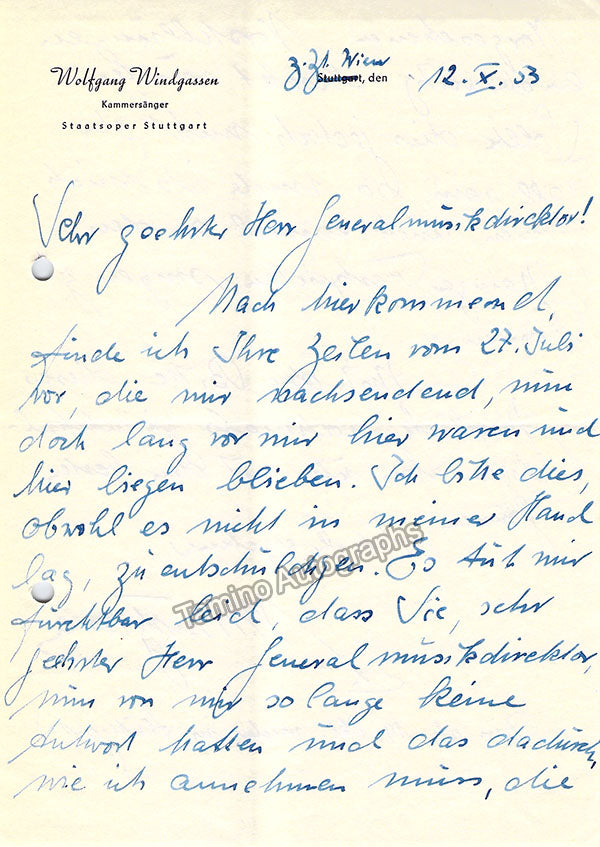 Wolfgang Windgassen
Kammersänger
Staatsoper Stuttgart
z.Zt. Wien
Stuttgart, den 12. X. 53
Sehr geehrter Herr Generalmusikdirektor!
Nach hier kommend,
finde ich Ihre Zeilen vom 27. Juli
vor, die mir nachsendend, nun
doch lang vor mir hier waren und
hier liegen blieben. Ich bitte dies,
obwohl es nicht in meiner Hand
lag, zu entschuldigen. Es tut mir
furchtbar leid, dass Sie, sehr
geehrter Herr Generalmusikdirektor,
nun von mir so lange keine
Antwort hatten und das dadurch,
wie ich annehmen muss, die
Tamino Autographs